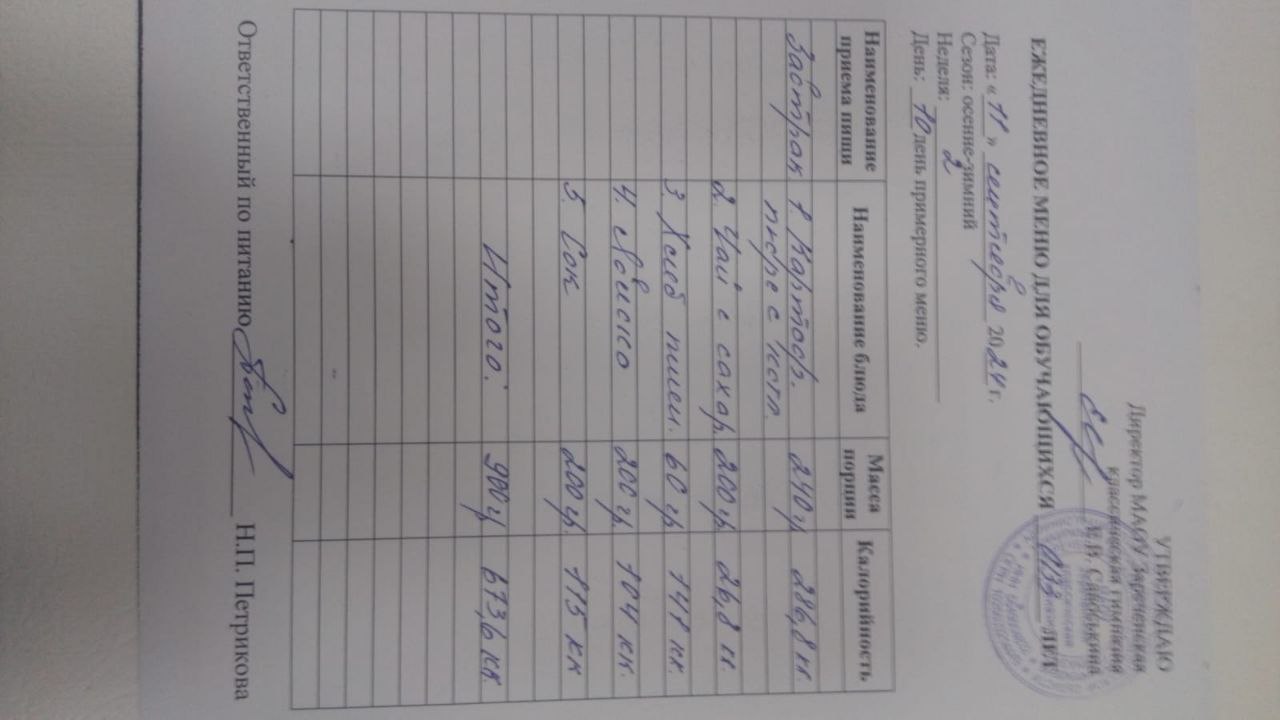 УТВЕРЖДАЮ
Директор МАОУ Зареченская
классическая гимназия
ЕЖЕДНЕВНОЕ МЕНЮ ДЛЯ ОБУЧАЮЩИХСЯ ОВЗ ЛЕТ
Дата: « 11 » сентября 2024 г.
Сезон: осенне-зимний
Неделя: 2
День: 10 день примерного меню.
Наименование приема пищи Наименование блюда Масса порции Калорийность
Завтрак 1. Картоф. 240 гр 286,8 кк.
пюре с котл.
2. Чай с сахар. 200 гр. 26,8 кк.
3. Хлеб пшен. 60 гр 141 кк.
4. Яблоко 200 гр. 104 кк.
5. Сок 200 гр. 115 кк
Итого: 900 гр 673,6 кк.
Ответственный по питанию Н.П. Петрикова